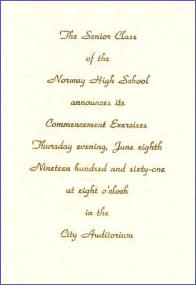 The Senior Class
of the
Norway High School
announces its
Commencement Exercises
Thursday evening, June eighth
Nineteen hundred and sixty-one
at eight o'clock
in the
City Auditorium